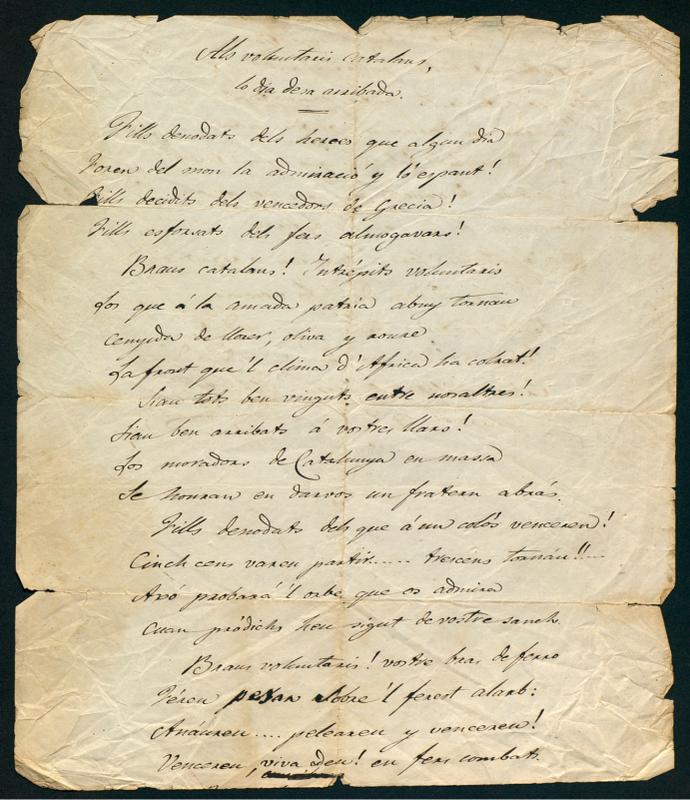 Als voluntaris catalans,
lo dia de sa arribada.
Fills denodats dels heroes que algun dia
Foren del mon la admiració y l'espant!
Fills decidits dels vencedors de Grecia!
Fills esforsats dels fers almogavars!
Braus catalans! Intrépits voluntaris
Los que á la amada patria abuy tornau
cenyida de llorer, oliva y roure
La front que'l clima d'Africa ha colrat!
Siau tots ben vinguts entre nosaltres!
Siau ben arribats á vostres llars!
Los moradors de Catalunya en massa
Se honran en darvos un fratern abrás.
Fills denodats dels que á un colós venceren!
Cinch cens vareu partir..... trescens tornáu!!...
Axó probará'l orbe que os admira
Cuan pródichs heu sigut de vostre sanch.
Braus voluntaris! vostre bras de ferro
Féreu pesar sobre'l ferest alarb:
Anáureu.... peleareu y vencereu!
Vencereu, viva Deu! en fers combats.